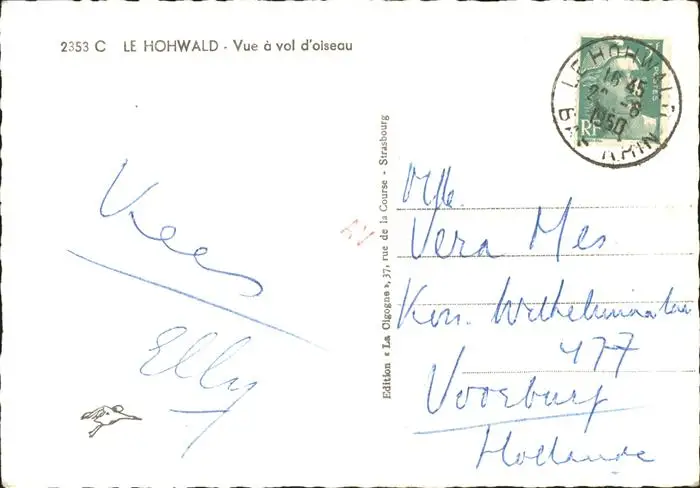 2353 C LE HOHWALD - Vue à vol d'oiseau
LE HOHWALD
16 45
1950
BAS RHIN
POSTES
RF
Kees
Elly
Edition « La Cigogne », 37, rue de la Course - Strasbourg
AV
Mlle.
Vera Mes.
Kon. Wilhelminalaan
477
Voorburg
Hollande